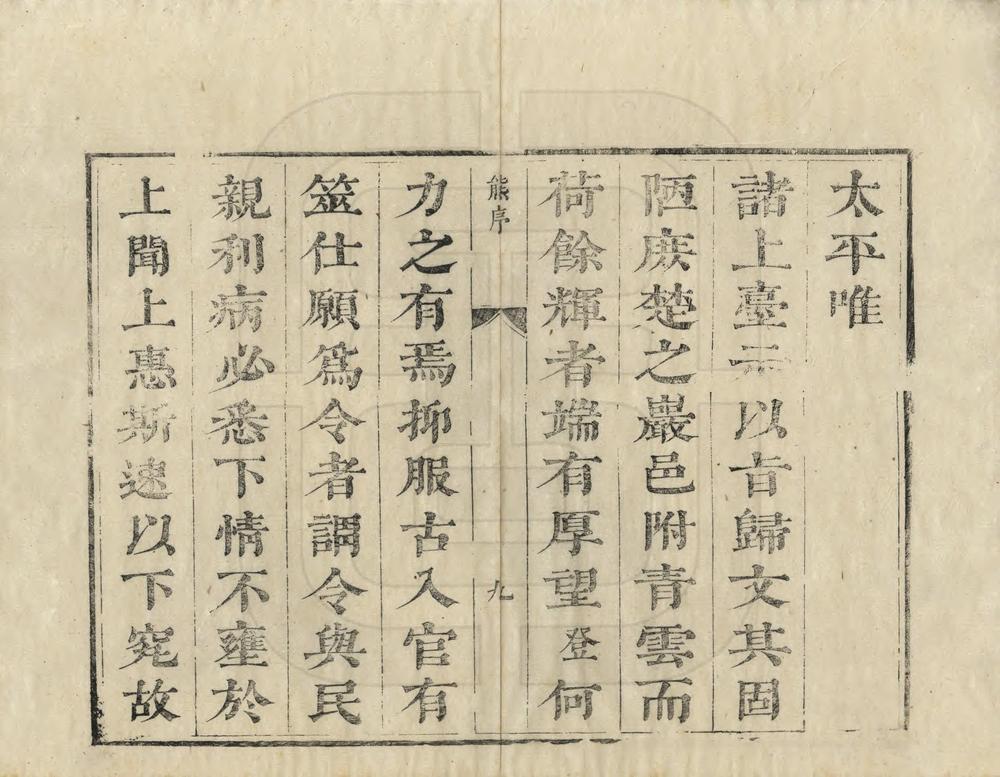 太平唯
諸上臺云以㫖歸文其固
陋庻楚之巖邑附青雲而
荷餘輝者端有厚望登何
熊序
九
力之有焉抑服古入官有
筮仕願為令者謂令與民
親利病必悉下情不壅於
上聞上惠斯速以下究故